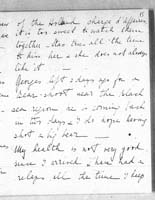 of the Holland charge d'affaires
it is too sweet to watch them
together - has one all the time
to kiss her & she does not always
like it —
Georges left 2 days ago for a
bear-shoot near the black
sea region is coming back
in two days & I do hope having
shot a big bear —
My health is not very good
since I arrived I have had a
relapse all the time I keep